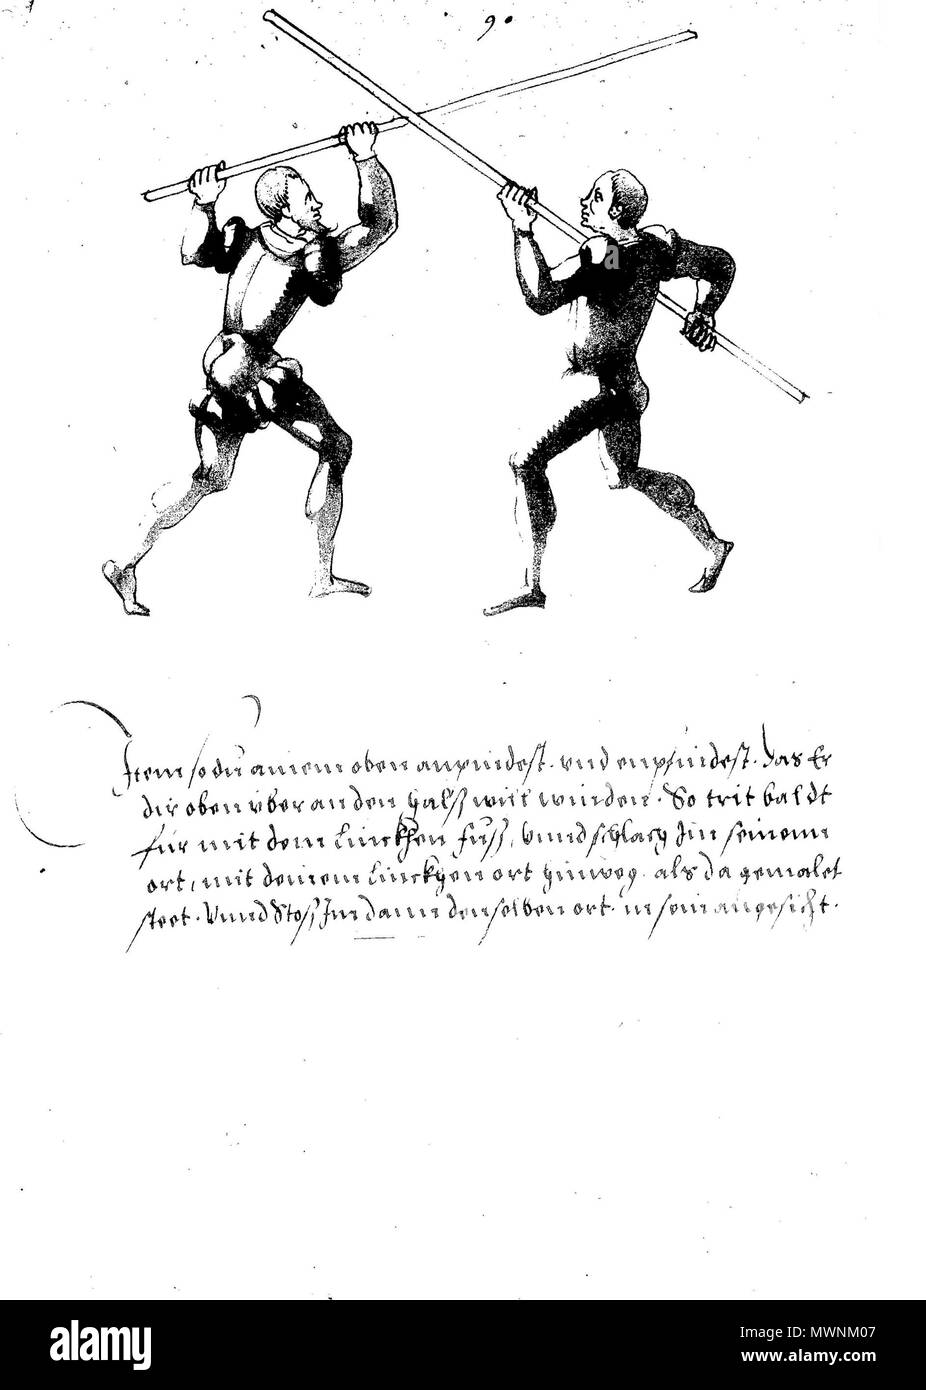 9.
Item so du ainem oben anpindest. vnd enpfindest. das Er
dir oben vber an den halß will winden. So trit baldt
für mit dem linckhen fuß, vnnd schlach Jm seinem
ort, mit deinem linckhen ort hinweg. als da gemalet
steet. Vnnd Stoß Jm dann denselben ort. in sein angesicht.
a
alamy
Image ID: MWNM07
www.alamy.com